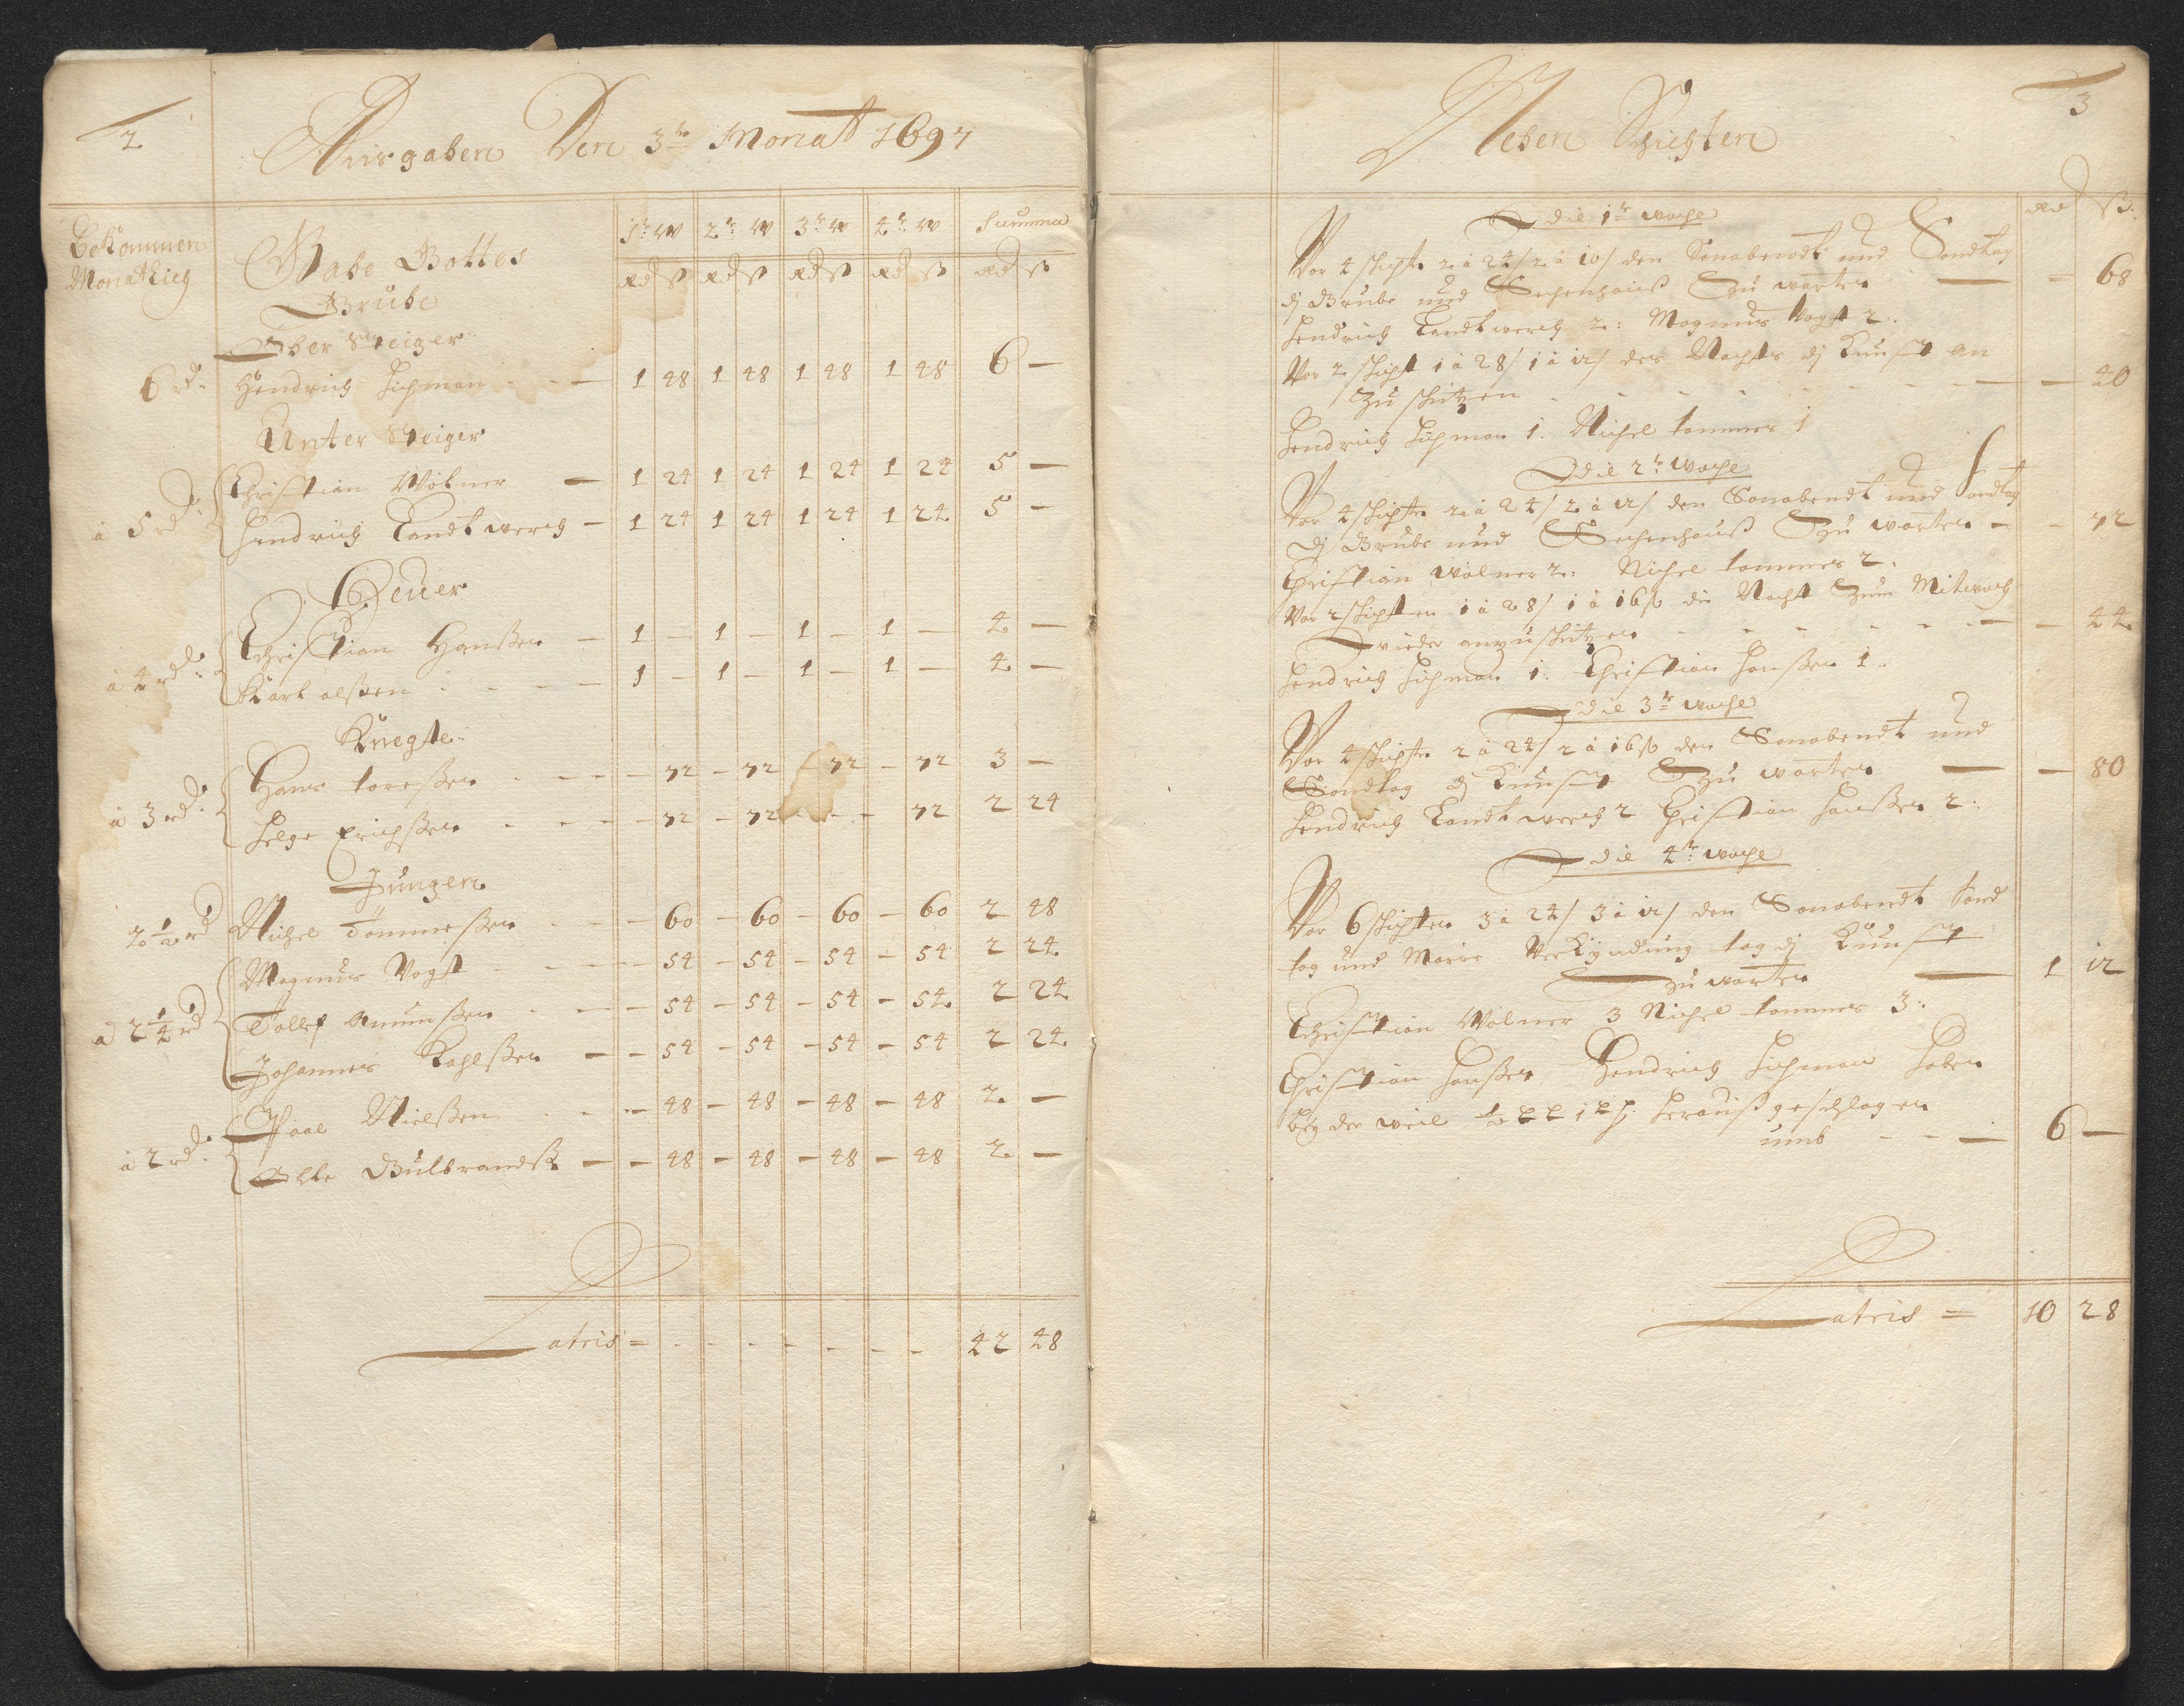 2
Ausgaben Den 3te Monat 1697
Bekommen
Monathlich
Gabe Gottes
Grube
1te W 2te W 3te W 4te W Summa
rd ß rd ß rd ß rd ß rd ß
Ober Steiger
6 rd. Hendrich Sichman - - - 1 48 1 48 1 48 1 48 6 —
Unter Steiger
à 5 rd: Christian Wolner — 1 24 1 24 1 24 1 24 5 —
Hendrich Landtwerch — 1 24 1 24 1 24 1 24 5 —
Heuer
à 4 rd: Christian Hanßen — 1 — 1 — 1 — 1 — 4 —
Kiart olßen - - - - 1 — 1 — 1 — 1 — 4 —
Knegte
à 3 rd: Hans toreßen - - - — 72 — 72 — 72 — 72 3 —
Helge Erichßen - - - — 72 — 72 - - - 72 2 24
Jungen
2 1/2 rd Michel Tommeßen - - — 60 — 60 — 60 — 60 2 48
Magnus Vogt - - - — 54 — 54 — 54 — 54 2 24
à 2 1/4 rd Tollef Amunßen - - — 54 — 54 — 54 — 54 2 24
Johannes Kahlßen — — 54 — 54 — 54 — 54 2 24
à 2 rd: Paal Nielßen - - — 48 — 48 — 48 — 48 2 —
Olle Gulbrandß — — 48 — 48 — 48 — 48 2 —
Latris = - - - - - - - - 42 48
3
Neben Schichten
rd ß.
die 1te woche
Vor 4 schichte 2 à 24/ 2 à 10/ den Sonabendt und Sondtag
dj Grube und Zechenhauß Zu warten — — 68
Hendrich Landtwerch 2: Magnus Vogt 2.
Vor 2 schicht 1 à 28/ 1 à 12/ des Nachts dj Kunst an
Zu schützen - - - - - - — — 40
Hendrich Sichman 1. Michel tommes 1
die 2te Woche
Vor 4 schichte 2 à 24/ 2 à 12/ den Sonabendt und Sondtag
dj Grube und Zechenhauß Zu warten — — 72
Christian Wolner 2: Michel tommes 2.
Vor 2 schichten 1 à 28/ 1 à 16ß die Nacht Zum Mitwoch
wieder anzuschützen - - - - - — — 44
Hendrich Sichman 1. Christian Hanßen 1.
die 3te woche
Vor 4 schichte 2 à 24/ 2 à 16ß den Sonabendt und
Sondtag dj Kunst Zu warten — — 80
Hendrich Landtwerch 2 Christian Hanßen 2:
die 4te woche
Vor 6 schichten 3 à 24/ 3 à 12/ den Sonabendt Sond
tag und Marie Verkyndung tag dj Kunst
zu warten — 1 12
Christian Wolner 3 Michel tommes 3:
Christian Hanßen Hendrich Sichman haben
beg der weil heraußgeschlagen
umb - - — 6 —
Latris = 10 28